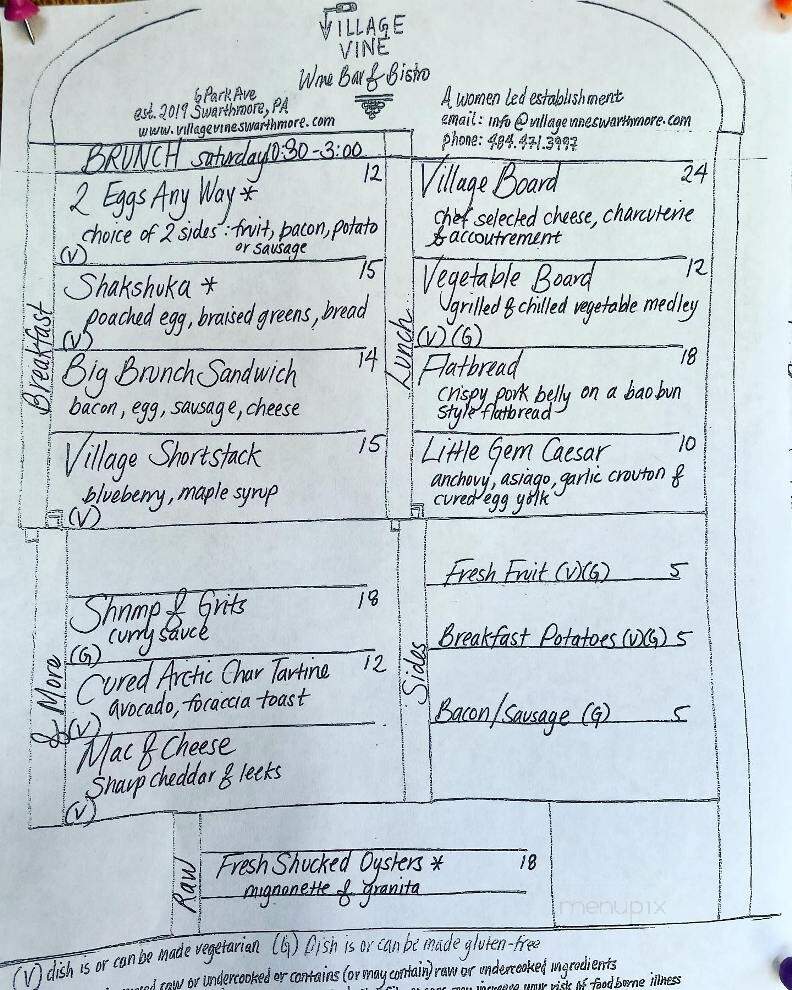 VILLAGE
VINE
Wine Bar & Bistro
6 Park Ave
est. 2019 Swarthmore, PA
www.villagevineswarthmore.com
A women led establishment
email: info@villagevineswarthmore.com
phone: 484.471.3997
BRUNCH saturday 10:30-3:00
Breakfast
2 Eggs Any Way * 12
choice of 2 sides: fruit, bacon, potato
or sausage
(V)
Shakshuka * 15
poached egg, braised greens, bread
(V)
Big Brunch Sandwich 14
bacon, egg, sausage, cheese
Village Shortstack 15
blueberry, maple syrup
(V)
Lunch
Village Board 24
chef selected cheese, charcuterie
& accoutrement
Vegetable Board 12
grilled & chilled vegetable medley
(V) (G)
Flatbread 18
crispy pork belly on a bao bun
style flatbread
Little Gem Caesar 10
anchovy, asiago, garlic crouton &
cured egg yolk
& More
Shrimp & Grits 18
curry sauce
(G)
Cured Arctic Char Tartine 12
avocado, focaccia toast
(V)
Mac & Cheese
Sharp cheddar & leeks
(V)
Sides
Fresh Fruit (V)(G) 5
Breakfast Potatoes (V)(G) 5
Bacon/Sausage (G) 5
Raw
Fresh Shucked Oysters * 18
mignonette & granita
menupix
(V) dish is or can be made vegetarian (G) Dish is or can be made gluten-free
raw or undercooked or contains (or may contain) raw or undercooked ingredients
may increase your risk of foodborne illness